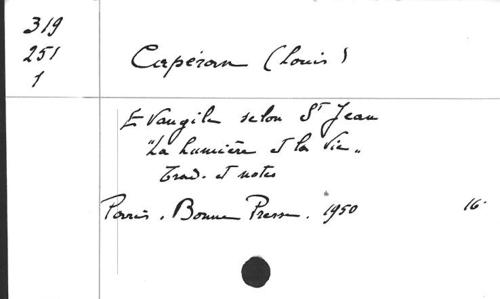 319
251
1
Capéran (Louis)
Evangile selon St Jean
"La Lumière et la Vie"
Trad. et notes
Paris. Bonne Presse. 1950 16°